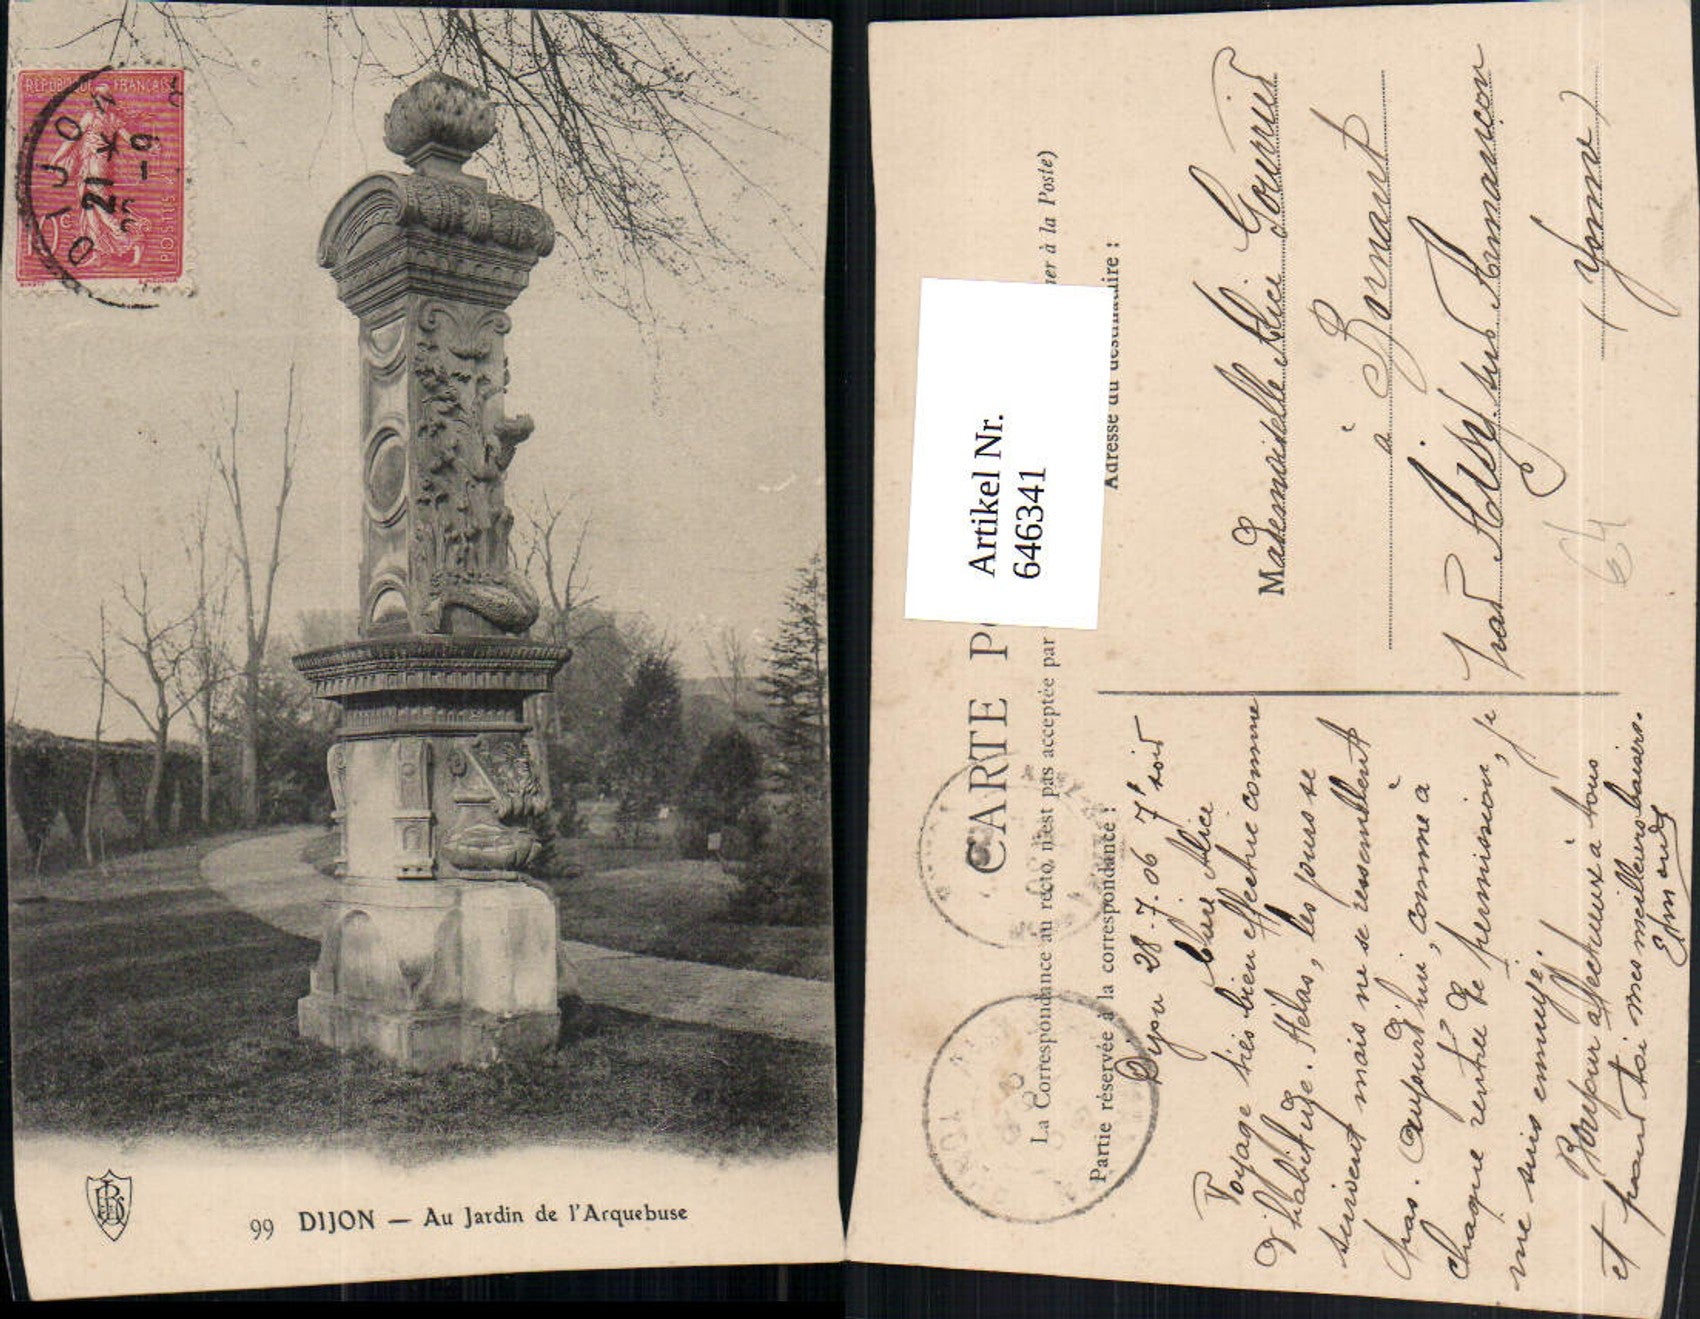 REPUBLIQUE FRANÇAISE
POSTES
DIJON
21 * -9
99 DIJON — Au Jardin de l'Arquebuse
Artikel Nr.
646341
CARTE P
La Correspondance au recto, n'est pas acceptée par
ner à la Poste)
Partie réservée à la correspondance :
Adresse du destinataire :
Dijon 28-7.06 7h soir
Chère Alice
Voyage très bien effectué comme
d'habitude. Hélas, les jours se
suivent mais ne se ressemblent
pas. Aujourd'hui, comme à
chaque rentrée de permission, je
me suis ennuyé.
Bonjour affectueux à tous
et pour toi mes meilleurs baisers.
Edmond
Mademoiselle Alice
à
par Aisy sur Armançon
(Yonne)
64